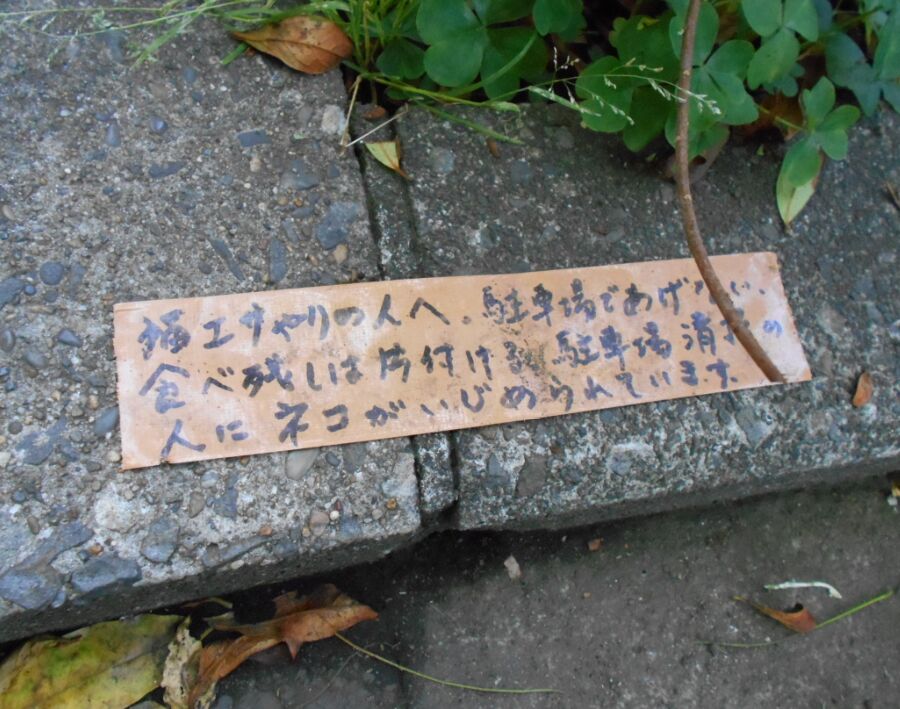 猫エサやりの人へ。駐車場であげない。
食べ残しは片付ける。駐車場清掃の
人にネコがいじめられています。